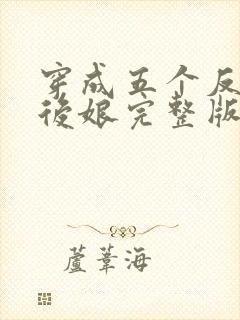 穿成五个反
後娘完整版
蘆葦海